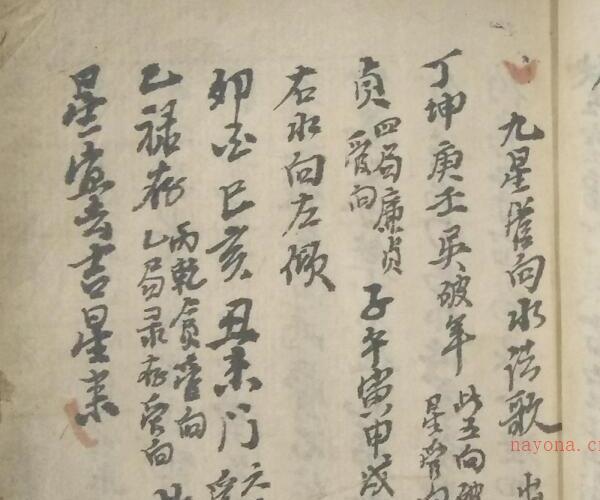 九星管向水法歌
丁坤庚壬吳破年 此五向破
星管向
貞 四局廉貞
受向 子午寅申戌
右水向左傾
卯酉巳亥丑未门
乙禄存 丙乾貪管向
乙局录存受向
星宜去吉星来
nayona.c